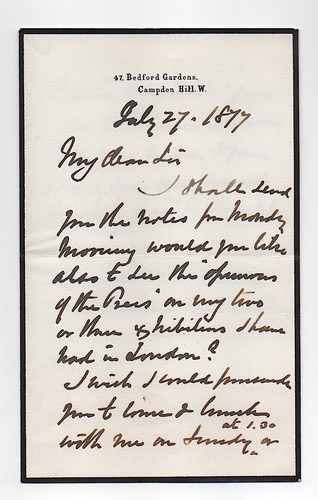 47, Bedford Gardens,
Campden Hill. W.
July 27. 1877
My dear Sir
I shall send
you the notes for Monday
Morning would you like
also to see the "opinions
of the Press" on my two
or three exhibitions I have
had in London?
I wish I could persuade
you to come & lunch
at 1.30
with me on Sunday, or